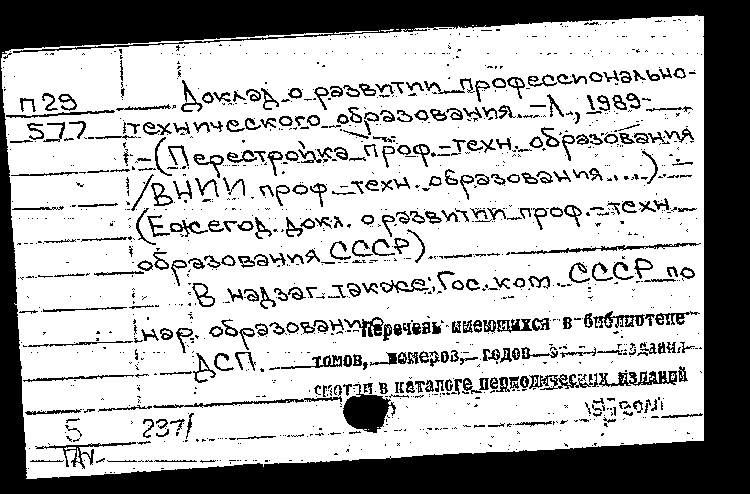 п29
577
Доклад о развитии профессионально-
технического образования. –Л., 1989-
–(Перестройка проф.–техн. образования
/ВНИИ проф.–техн. образования...). –
(Ежегод. докл. о развитии проф.–техн.
образования СССР)
В надзаг. также: Гос. ком. СССР по
нар. образованию
Перечень имеющихся в библиотеке
ДСП.
томов, номеров, годов издания
смотри в каталоге периодических изданий
5 237/